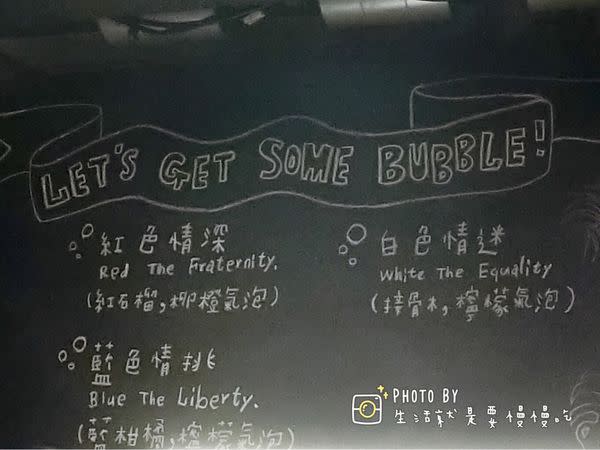 LET'S GET SOME BUBBLE!
紅色情深
Red The Fraternity.
(紅石榴,柳橙氣泡)
白色情迷
White The Equality
(接骨木,檸檬氣泡)
藍色情挑
Blue The Liberty.
(藍柑橘,檸檬氣泡)
PHOTO BY
生活就是要慢慢吃